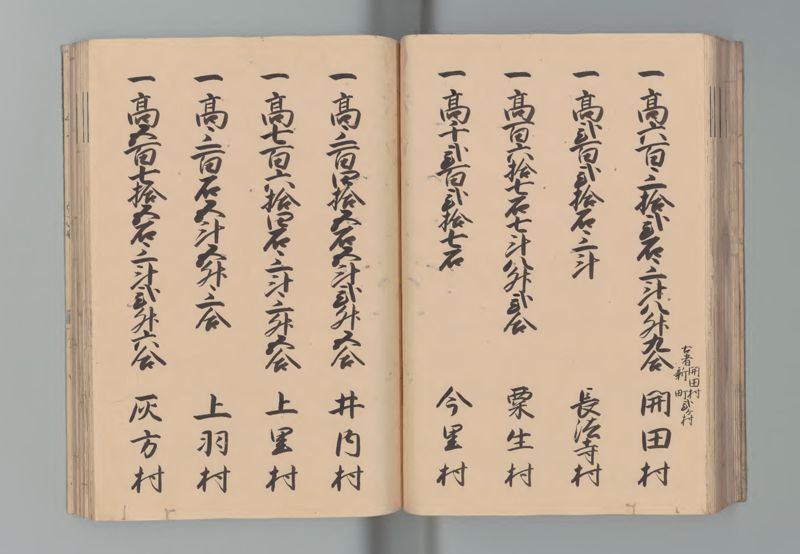 一高六百三拾弐石三斗八升九合 開田村
古者開田村
新町弐ケ村
一高弐百弐拾石三斗 長法寺村
一高百六拾七石七斗八升弐合 粟生村
一高千弐百弐拾七石 今里村
一高三百四拾五石五斗弐升五合 井内村
一高七百六拾四石三斗三升五合 上里村
一高三百石五斗五升三合 上羽村
一高五百七拾五石三斗弐升六合 灰方村